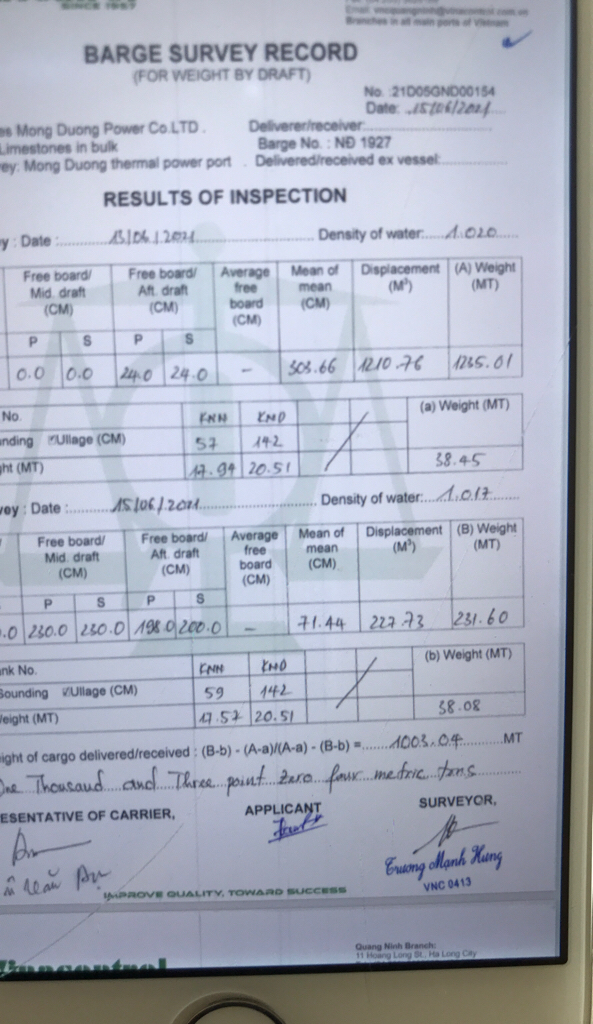 SINCE 1957
Email: vncquangninh@vinacontrol.com.vn
Branches in all main ports of Vietnam
BARGE SURVEY RECORD
(FOR WEIGHT BY DRAFT)
No. :21D05GND00154
Date: 15/06/2021
es Mong Duong Power Co.LTD .
Deliverer/receiver:
Limestones in bulk
Barge No. : NĐ 1927
ey: Mong Duong thermal power port .
Delivered/received ex vessel:
RESULTS OF INSPECTION
y : Date : 13/06/2021 Density of water: 1.020
Free board/ Mid. draft (CM) Free board/ Aft. draft (CM) Average free board (CM) Mean of mean (CM) Displacement (M³) (A) Weight (MT)
P S P S
0.0 0.0 24.0 24.0 - 303.66 1210.76 1235.01
No. KNN KND (a) Weight (MT)
nding Ullage (CM) 57 142
ht (MT) 17.94 20.51 38.45
vey : Date : 15/06/2021 Density of water: 1.017
Free board/ Mid. draft (CM) Free board/ Aft. draft (CM) Average free board (CM) Mean of mean (CM) Displacement (M³) (B) Weight (MT)
P S P S
.0 230.0 230.0 198.0 200.0 - 71.44 227.73 231.60
nk No. KNN KND (b) Weight (MT)
Sounding Ullage (CM) 59 142
Weight (MT) 17.57 20.51 38.08
ight of cargo delivered/received : (B-b) - (A-a)/(A-a) - (B-b) = 1003.04 MT
One Thousand and Three point zero four metric tons
ESENTATIVE OF CARRIER, APPLICANT SURVEYOR,
Trương Mạnh Hùng
VNC 0413
IMPROVE QUALITY, TOWARD SUCCESS
Quang Ninh Branch:
11 Hoang Long St., Ha Long City
Vinacontrol